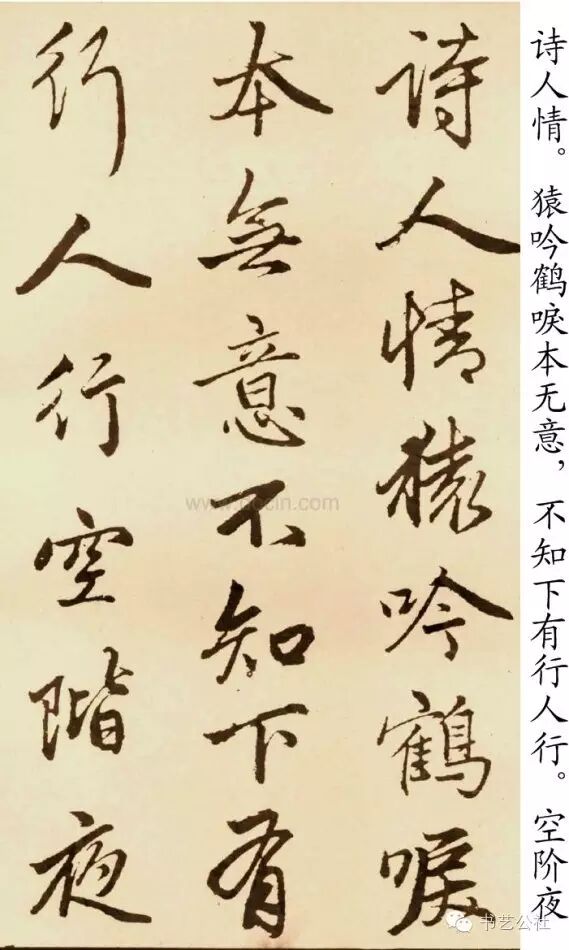 诗人情。猿吟鹤唳本无意，不知下有行人行。空阶夜
詩人情猿吟鶴唳
本無意不知下有
行人行空階夜
书艺公社